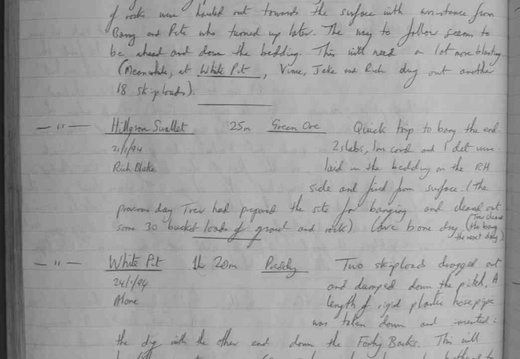 of rocks were hauled out towards the surface with assistance from
Barry and Pete who turned up later. The way to follow seems to
be ahead and down the bedding. This will need a lot more blasting
(Meanwhile, at White Pit, Vince, Jake and Rich dug out another
18 skiploads).
— " — Hillgrove Swallet 25m Green Ore Quick trip to bang the end
21/1/94 2 slabs, 1m cord and 1 det were
Rich Blake laid in the bedding on the RH
side and fired from surface. (The
previous day Trev had prepared the site for banging and cleared out
some 30 bucket loads of gravel and rocks) (dive bone dry (Trev cleared
the bang
the next day)
— " — White Pit 1h 20m Priddy Two skiploads dragged out
24/1/94 and dumped down the pitch. A
Alone length of rigid plastic hosepipe
was taken down and inserted in
the dig with the other end down the Forty Backs. This will